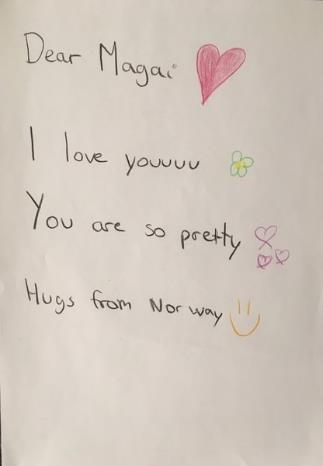 Dear Magai
I love youuuu
You are so pretty
Hugs from Norway